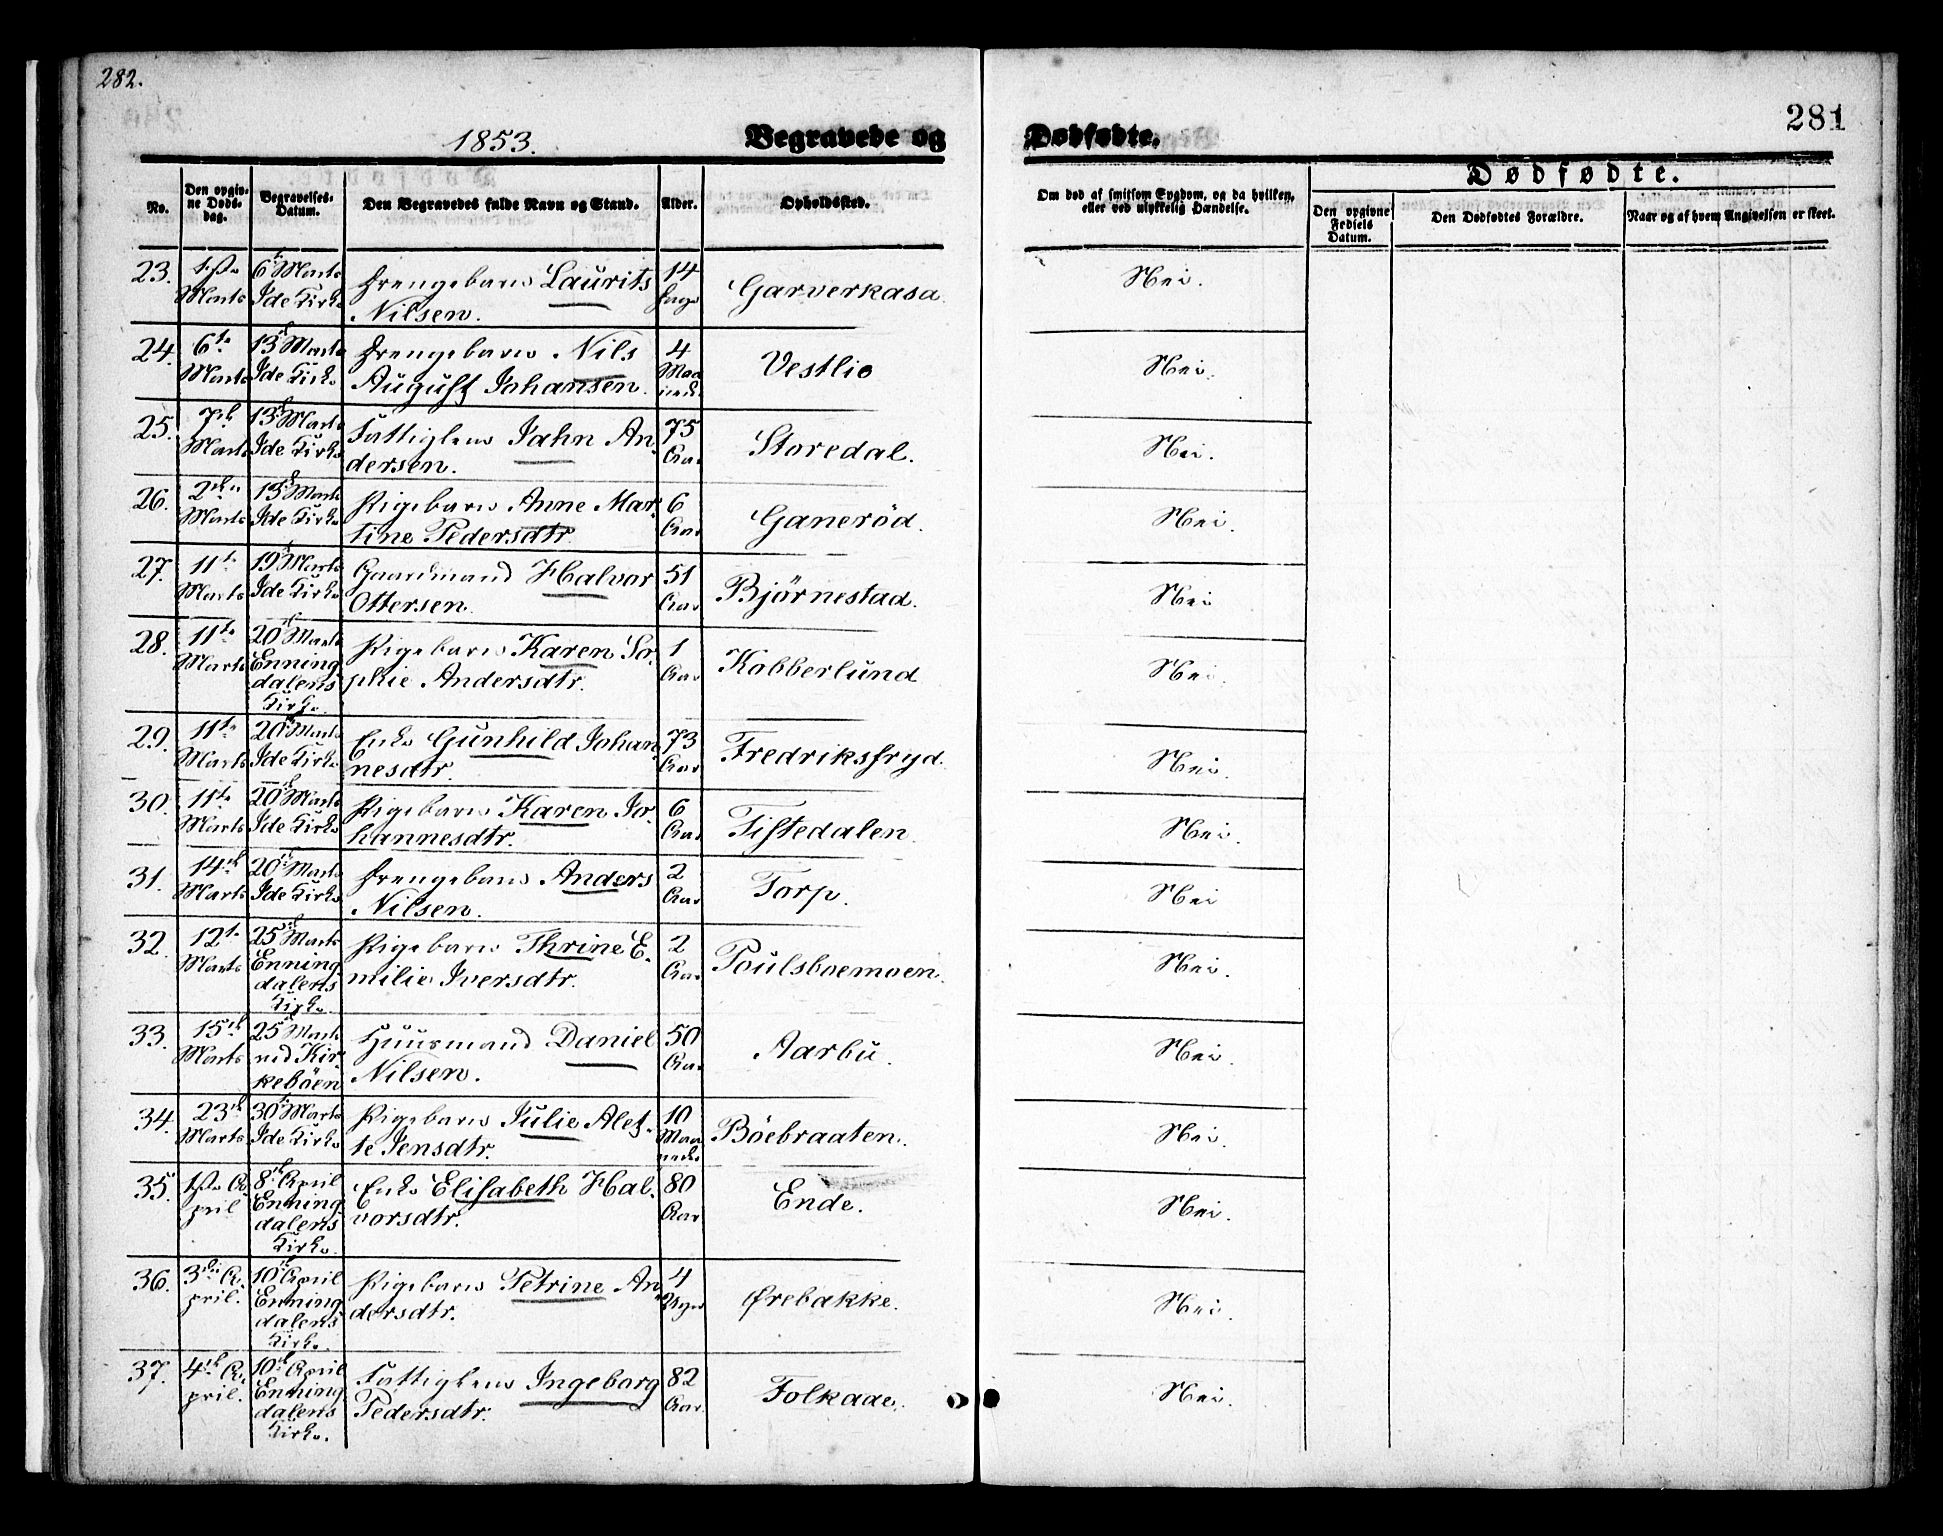 282.
281
1853.
Begravede og Dødfødte.
Dødfødte.
No.
Den opgivne Døds-dag.
Begravelses-Datum.
Den Begravedes fulde Navn og Stand.
Alder.
Opholdssted.
Om død af smitsom Sygdom, og da hvilken, eller ved ulykkelig Hændelse.
Den opgivne Fødsels Datum.
Den Dødfødtes Forældre.
Naar og af hvem Angivelsen er skeet.
23. 1ste Marts 6te Marts Ide Kirke Drengebarn Laurits Nilsen. 14 Dage Garverkasa Nei.
24. 6te Marts 13de Marts Ide Kirke Drengebarn Nils August Johansen. 4 Maaneder Vestlie Nei.
25. 7de Marts 13de Marts Ide Kirke Fattiglem Jahn Andersen. 75 Aar Storedal. Nei.
26. 2den Marts 13de Marts Ide Kirke Pigebarn Anne Martine Pedersdtr 6 Aar Ganerød. Nei.
27. 11te Marts 19de Marts Ide Kirke Gaardmand Halvor Ottersen. 51 Aar Bjørnestad. Nei
28. 11te Marts 20de Marts Enningdalens Kirke Pigebarn Karen Sophie Andersdtr. 1 Aar Kobberlund Nei.
29. 11te Marts 20de Marts Ide Kirke Enke Gunhild Johannesdtr. 73 Aar Fredriksfryd. Nei.
30. 11te Marts 20de Marts Ide Kirke Pigebarn Karen Johannesdtr. 6 Aar Tistedalen Nei.
31. 14de Marts 20de Marts Ide Kirke Drengebarn Anders Nilsen. 2 Aar Torp. Nei
32. 12te Marts 25de Marts Enningdalens Kirke Pigebarn Thrine Emilie Iversdtr. 2 Aar Poulsboemoen. Nei.
33. 15de Marts 25de Marts ved Kirkebøen Huusmand Daniel Nilsen. 50 Aar Aarbu. Nei.
34. 23de Marts 30te Marts Ide Kirke Pigebarn Julie Alette Jensdtr. 10 Maaneder Bøebraaten. Nei.
35. 1ste April 8de April Enningdalens Kirke. Enke Elisabeth Halvorsdtr. 80 Aar Ende. Nei.
36. 3die April. 10de April Enningdalens Kirke. Pigebarn Petrine Andersdtr. 4 Uger Ørebakke. Nei.
37. 4de April. 10de April Enningdalens Kirke. Fattiglem Ingeborg Pedersdtr. 82 Aar Folkaae. Nei.